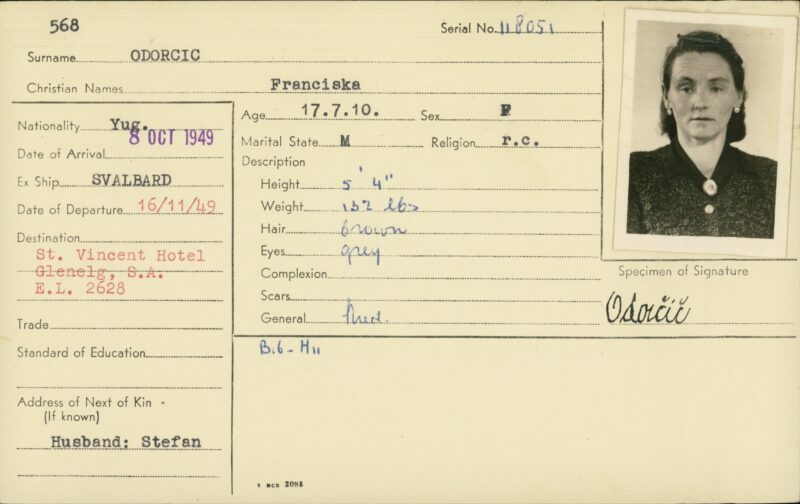 568
Serial No. 118051
Surname ODORCIC
Christian Names Franciska
Nationality Yug.
8 OCT 1949
Date of Arrival
Ex Ship SVALBARD
Date of Departure 16/11/49
Destination
St. Vincent Hotel
Glenelg, S.A.
E.L. 2628
Trade
Standard of Education
Address of Next of Kin
(If known)
Husband: Stefan
Age 17.7.10. Sex F
Marital State M Religion r.c.
Description
Height 5' 4"
Weight 132 lbs
Hair brown
Eyes grey
Complexion
Scars
General Med.
B.6 - H11
Specimen of Signature
Odorčič
2085